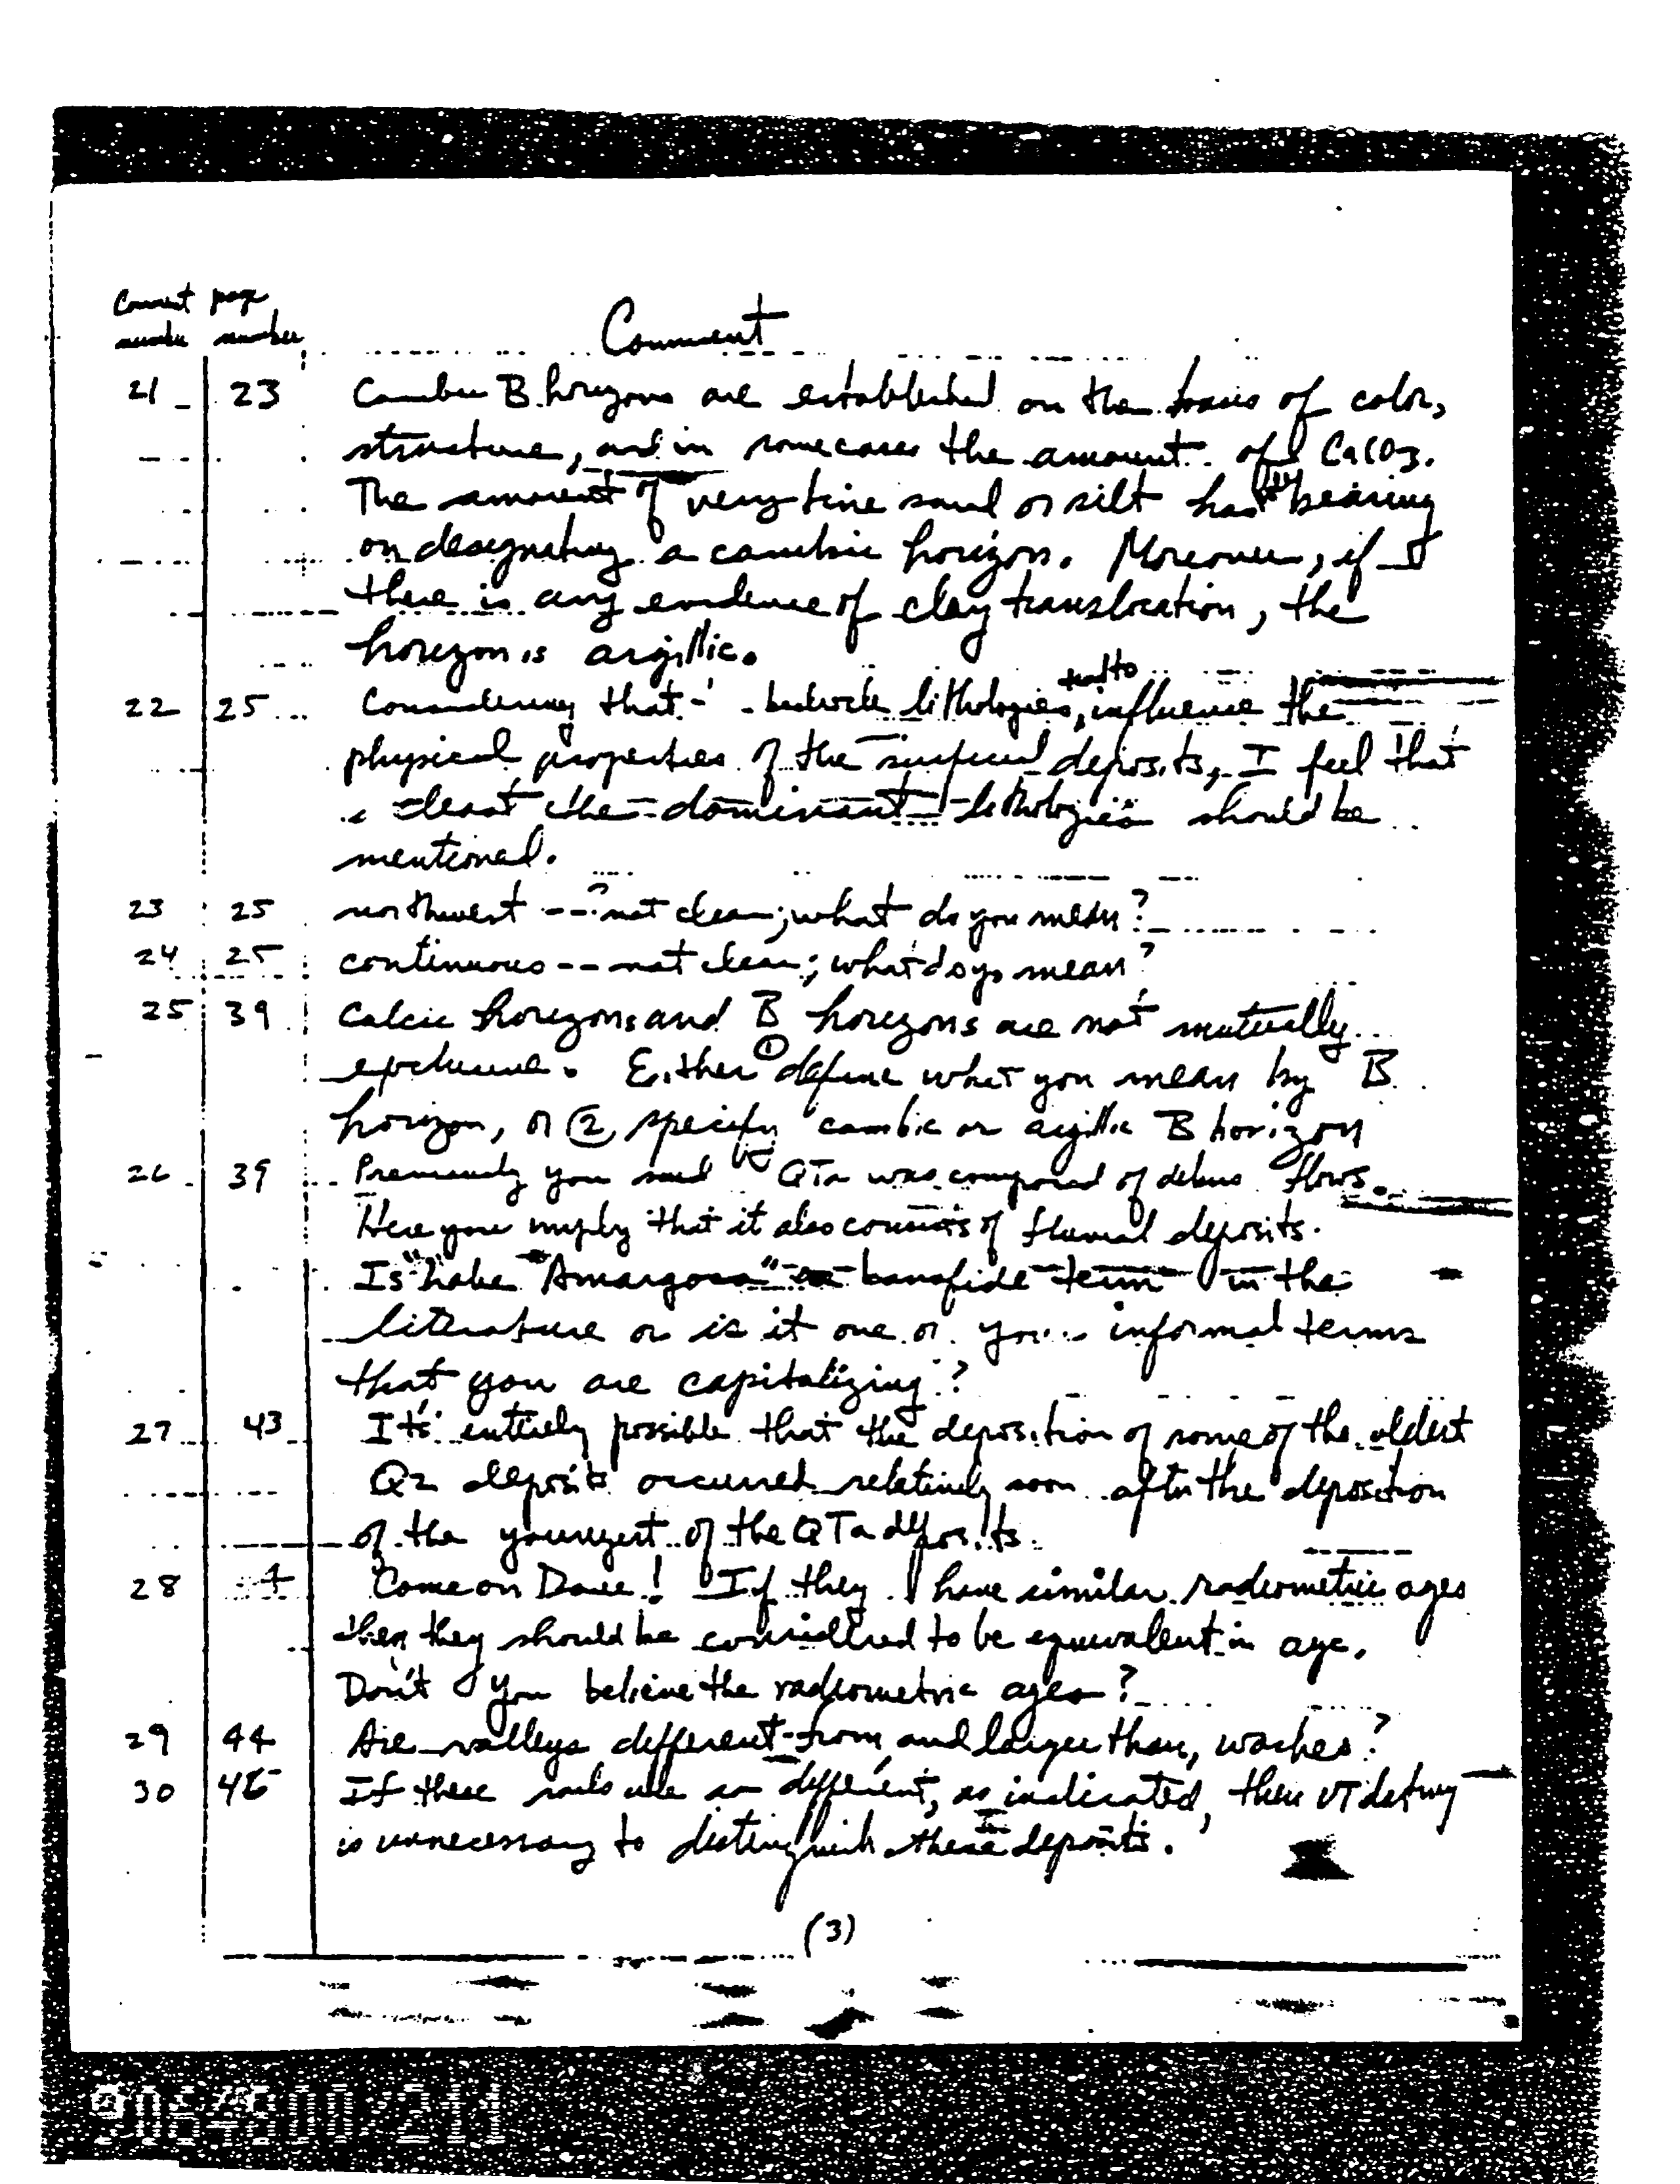 Comment page
number number
Comment
21 23 Cambic B horizons are established on the basis of color,
structure, and in some cases the amount of CaCO3.
The amount of very fine sand or silt has little bearing
on designating a cambic horizon. Moreover, if
there is any evidence of clay translocation, the
horizon is argillic.
tend to
22 25 Considering that bedrock lithologies, influence the
physical properties of the surficial deposits, I feel that
at least the dominant lithologies should be
mentioned.
23 25 northwest -- not clear; what do you mean?
24 25 continuous -- not clear; what do you mean?
25 39 Calcic horizons and B horizons are not mutually
exclusive. Either ① define what you mean by B
horizon, or ② specify cambic or argillic B horizon
26 39 Previously you said QTa was composed of debris flows.
Here you imply that it also consists of fluvial deposits.
Is "Lake Amargosa" a bonafide term in the
literature or is it one of your informal terms
that you are capitalizing?
27 43 It's entirely possible that the deposition of some of the oldest
Q2 deposits occurred relatively soon after the deposition
of the youngest of the QTa deposits.
28 Come on Dave! If they have similar radiometric ages
then they should be considered to be equivalent in age.
Don't you believe the radiometric ages?
29 44 Are valleys different from, and larger than, washes?
30 If these soils are so different, as indicated, then
is unnecessary to distinguish these deposits.
(3)